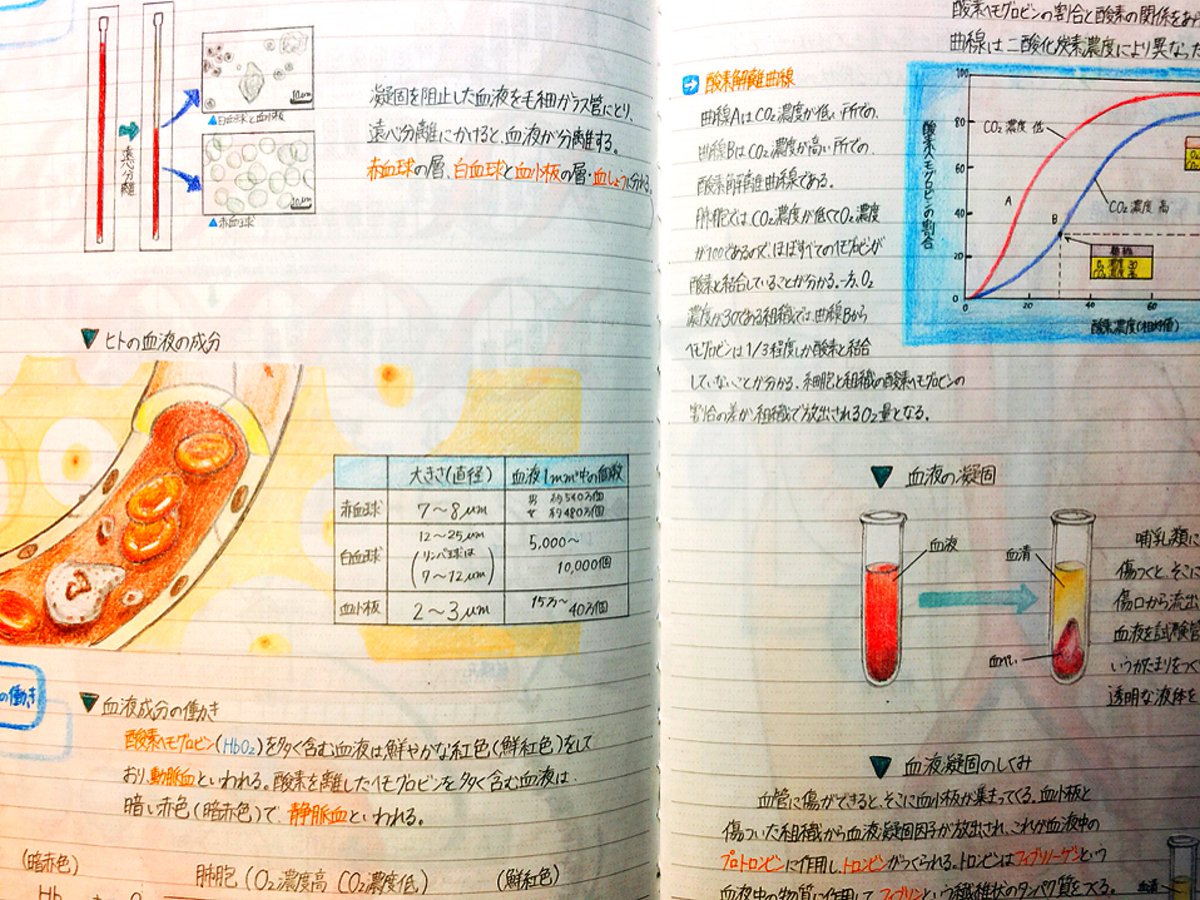 遠心分離
10μm
▲白血球と血小板
10μm
▲赤血球
凝固を阻止した血液を毛細ガラス管にとり、
遠心分離にかけると、血液が分離する。
赤血球の層、白血球と血小板の層・血しょうに分れる。
▼ ヒトの血液の成分
大きさ(直径) 血液1mm³中の個数
赤血球 7〜8μm 男 約540万個
女 約480万個
白血球 12〜25μm
(リンパ球は
7〜12μm)
5,000〜
10,000個
血小板 2〜3μm 15万〜
40万個
の働き
▼ 血液成分の働き
酸素ヘモグロビン(HbO₂)を多く含む血液は鮮やかな紅色(鮮紅色)をして
おり、動脈血といわれる。酸素を離したヘモグロビンを多く含む血液は、
暗い赤色(暗赤色)で、静脈血といわれる。
(暗赤色)
肺胞(O₂濃度高 CO₂濃度低)
(鮮紅色)
Hb + O
酸素ヘモグロビンの割合と酸素の関係をあ
曲線は二酸化炭素濃度により異なった
酸素解離曲線
曲線AはCO₂濃度が低い所での、
曲線BはCO₂濃度が高い所での
酸素解離曲線である。
肺胞では、CO₂濃度が低くてO₂濃度
が100であるので、ほぼすべてのヘモグロビンが
酸素と結合していることが分かる。一方、O₂
濃度が30である組織では、曲線Bから
ヘモグロビンは1/3程度しか酸素と結合
していないことが分かる。細胞と組織の酸素ヘモグロビンの
割合の差が、組織で放出されるO₂量となる。
酸素ヘモグロビンの割合
100
80
60
40
20
0
20 40 60
酸素濃度(相対値)
CO₂濃度 低
A
B
CO₂濃度 高
組織
O₂濃度 30
▼ 血液の凝固
血液
血清
血ぺい
哺乳類に
傷つくと、そこに
傷口から流出
血液を試験管
いうかたまりをつく
透明な液体を
▼ 血液凝固のしくみ
血管に傷ができると、そこに血小板が集まってくる。血小板と
傷ついた組織から血液凝固因子が放出され、これが血液中の
プロトロンビンに作用し、トロンビンがつくられる。トロンビンはフィブリノーゲンという
血液中の物質に作用して、フィブリンという繊維状のタンパク質を変える。
血清